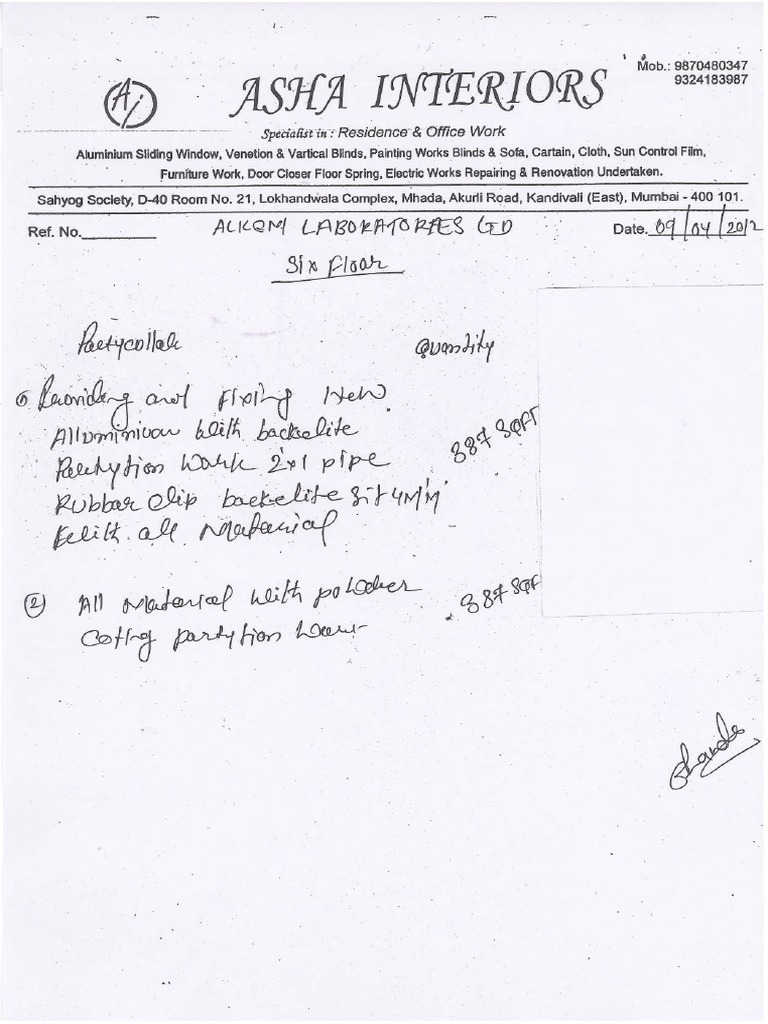 Mob.: 9870480347
9324183987
Ai
ASHA INTERIORS
Specialist in : Residence & Office Work
Aluminium Sliding Window, Venetion & Vartical Blinds, Painting Works Blinds & Sofa, Cartain, Cloth, Sun Control Film,
Furniture Work, Door Closer Floor Spring, Electric Works Repairing & Renovation Undertaken.
Sahyog Society, D-40 Room No. 21, Lokhandwala Complex, Mhada, Akurli Road, Kandivali (East), Mumbai - 400 101.
Ref. No. ALKEM LABORATORES LTD Date. 09/04/2012
Six Floor
Quantity
and Fixing New
Alluminium With backelite
Partytion Work 2x1 pipe
Rubbar clip backelite 4MM
With all Matarial
387 SQFT
2 All Matarial With powder
Coting partytion
387 SQF